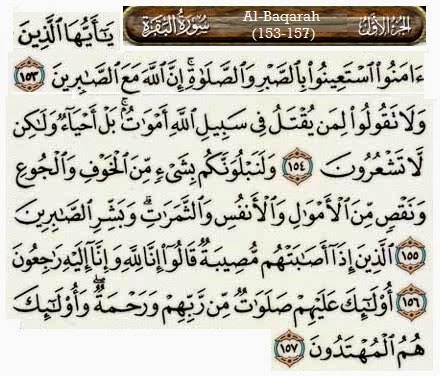 يَـٰٓأَيُّهَا ٱلَّذِينَ سُورَةُ البَقَرَةِ Al-Baqarah (153-157) الجُزءُ الأَوَّلُ
ءَامَنُوا۟ ٱسْتَعِينُوا۟ بِٱلصَّبْرِ وَٱلصَّلَوٰةِ ۚ إِنَّ ٱللَّهَ مَعَ ٱلصَّـٰبِرِينَ ١٥٣
وَلَا تَقُولُوا۟ لِمَن يُقْتَلُ فِى سَبِيلِ ٱللَّهِ أَمْوَٰتٌۢ ۚ بَلْ أَحْيَآءٌ وَلَـٰكِن
لَّا تَشْعُرُونَ ١٥٤ وَلَنَبْلُوَنَّكُم بِشَىْءٍ مِّنَ ٱلْخَوْفِ وَٱلْجُوعِ
وَنَقْصٍ مِّنَ ٱلْأَمْوَٰلِ وَٱلْأَنفُسِ وَٱلثَّمَرَٰتِ ۗ وَبَشِّرِ ٱلصَّـٰبِرِينَ
١٥٥ ٱلَّذِينَ إِذَآ أَصَـٰبَتْهُم مُّصِيبَةٌ قَالُوٓا۟ إِنَّا لِلَّهِ وَإِنَّآ إِلَيْهِ رَٰجِعُونَ
١٥٦ أُو۟لَـٰٓئِكَ عَلَيْهِمْ صَلَوَٰتٌ مِّن رَّبِّهِمْ وَرَحْمَةٌ ۖ وَأُو۟لَـٰٓئِكَ
هُمُ ٱلْمُهْتَدُونَ ١٥٧